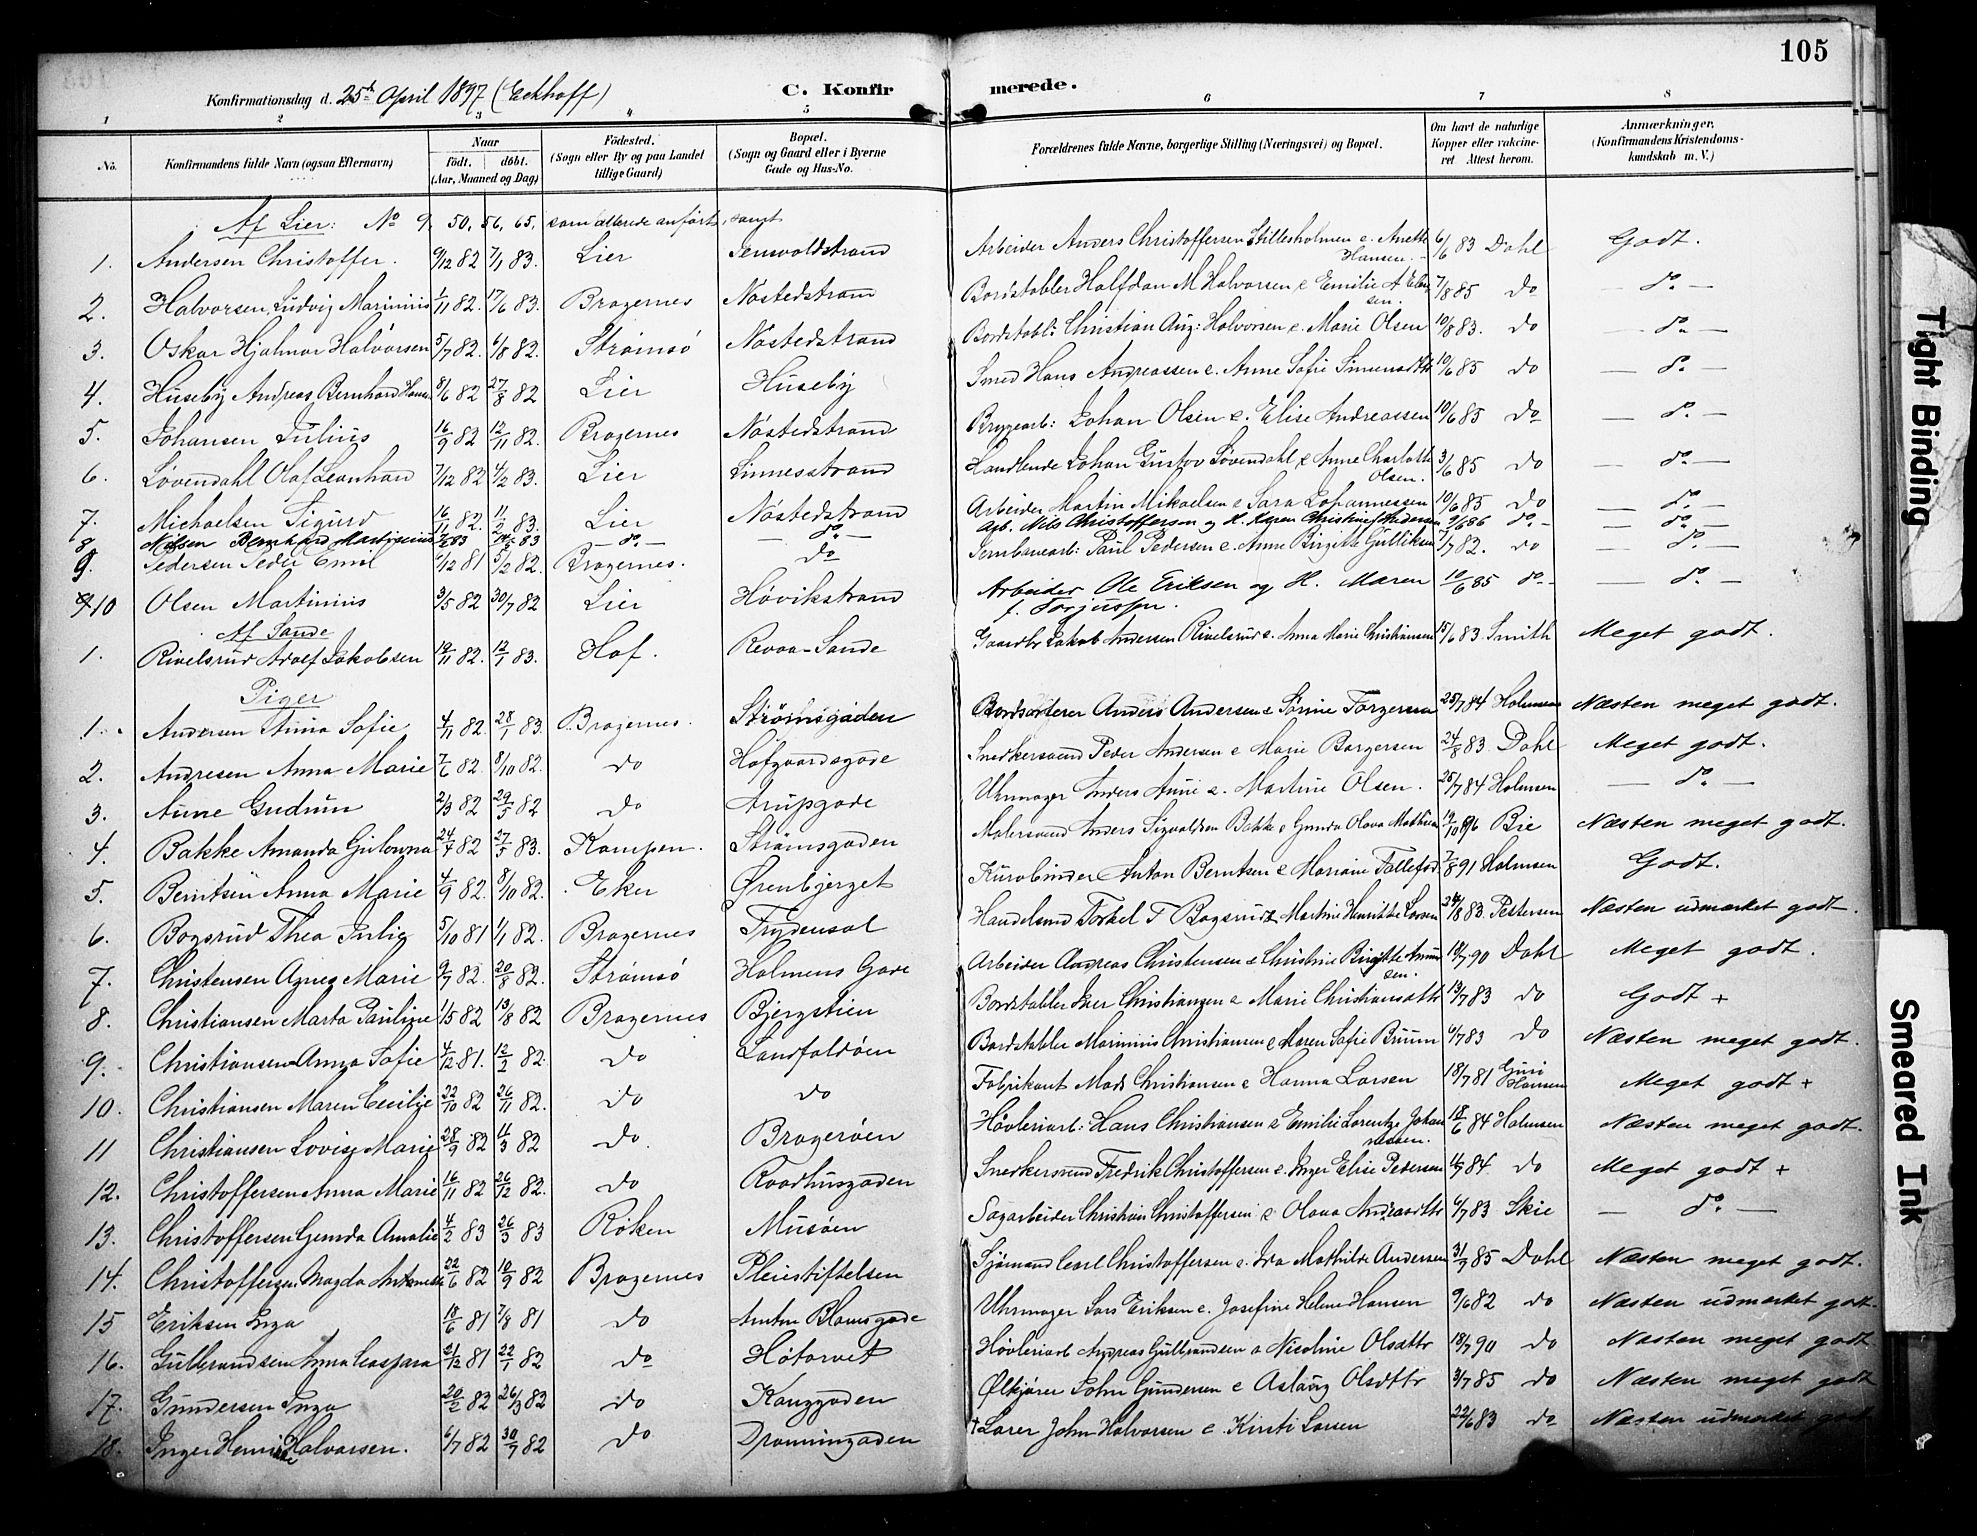 105
Konfirmationsdag d. 25de April 1897 (Eckhoff) C. Konfirmerede.
1 2 3 4 5 6 7 8
No. Konfirmandens fulde Navn (ogsaa Efternavn) Naar født. døbt. (Aar, Maaned og Dag) Födested. (Sogn eller By og paa Landet tillige Gaard) Bopæl. (Sogn og Gaard eller i Byerne Gade og Hus-No. Forældrenes fulde Navne, borgerlige Stilling (Næringsvei) og Bopæl. Om havt de naturlige Kopper eller vakcineret Attest herom. Anmærkninger. (Konfirmandens Kristendomskundskab m. V.)
Af Lier: No 9, 50, 56, 65, som allerede anført, samt
1. Andersen Christoffer. 9/12 82 7/1 83. Lier Jensvoldstrand Arbeider Anders Christoffersen Stillesholmen e. Anette Hansen. 6/6 83 Dahl Godt.
2. Halvorsen, Ludvig Marinius 1/11 82. 17/6 83. Bragernes Nøstedstrand Bordstabler Halfdan M Halvorsen e Emilie A 7/8 85 do — do —
3. Oskar Hjalmar Halvorsen 5/7 82. 6/8 82. Strømsö Nøstedstrand Bordstabl: Christian Aug: Halvorsen e. Marie Olsen 10/8 83. do — do —
4. Huseby Andreas Bernhard Hans 8/6 82 27/8 82 Lier Huseby Smed Hans Andreassen e. Anne Sofie Simensdttr 10/6 85 do — do —
5. Johansen Julius 16/9 82 12/11 82. Bragernes Nøstedstrand Bryggearb: Johan Olsen e. Elise Andreassen 10/6 85 do — do —
6. Løvendahl Olaf Leonhard 7/12 82 4/2 83. Lier Linnesstrand Handlende Johan Gustav Løvendahl e Anne Charlotte Olsen. 3/6 85 do — do —
7. Michaelsen Sigurd 16/11 82. 11/2 83. Lier Nøstedstrand Arbeider Martin Mikaelsen e Sara Johannessen 10/6 85 do — do —
8. Nilsen Bernhard Martinius — do — — do — Arb. Nils Christoffersen og H. Karen Christine Andersen 9/6 86 do. — — do —
9. Pedersen Peder Emil 6/12 81 5/2 82. Bragernes. do Jernbanearb: Paul Pedersen e. Anne Birgitte Gulliksen 7/7 82. do — do —
10 Olsen Martinius 3/5 82 30/7 82 Lier Høvikstrand Arbeider Ole Eriksen og H. Maren f. Torjussen. 10/6 85 do — — do —
Af Sande
1. Rivelsrud Adolf Jakobsen 19/11 82. 12/1 83. Hof. Revaa-Sande Gaardbr Jakob Andersen Rivelsrud e. Anna Marie Christiansen 15/6 83. Smith Meget godt.
Piger
1. Andersen Anna Sofie 4/11 82. 28/1 83. Bragernes. Strømsgaden Bordsorterer Anders Andersen e Sørine Torgersen 25/7 84 Holmsen Næsten meget godt.
2. Andresen Anna Marie 7/6 82. 8/10 82. do Hofgaardsgade Snedkersvend Peder Andersen e Marie Borgersen 24/8 83. Dahl Meget godt.
3. Aune Gudrun 2/3 82 29/5 82 do Arupgade Uhrmager Anders Aune e. Martine Olsen. 25/7 84 Holmsen — do —
4. Bakke Amanda Gulowna 24/4 82 27/5 83. Kampen. Strømsgaden Malersvend Anders Sigvaldsen Bakke e Gunda Olava 19/10 96 Bie Næsten meget godt.
5. Berntsen Anna Marie 4/9 82. 8/10 82. Eker Ørenbjerget Kurvbinder Anton Berntsen e Mariane Tollefsd 7/8 91 Holmsen Godt.
6. Bogsrud Thea Julie 5/10 81 1/1 82. Bragernes Frydensal Handelsmd Torkel T Bogsrud e Martine Henrikke Larsen 24/8 83. Pettersen Næsten udmærket godt.
7. Christensen Agnes Marie 9/7 82. 20/8 82. Strømsö Holmens Gade Arbeider Andreas Christensen e Christine Birgitte Amundsen. 10/7 90 Dahl Meget godt.
8. Christiansen Marta Pauline 11/5 82 13/8 82 Bragernes Bjergstien Bordstabler Iver Christiansen e Marie Christiansdttr 13/7 83 do Godt +
9. Christiansen Anna Sofie 4/12 81. 12/2 82. do Landfaldöen Bordstabler Marinius Christiansen e Maren Sofie Bruun 6/7 83 do Næsten meget godt.
10. Christiansen Maren Cecilie 22/10 82 26/11 82. do do Fabrikant Mads Christiansen e Hanna Larsen 18/7 81 Guri Hansen Meget godt +
11 Christiansen Lovise Marie 28/9 82 4/3 82 do. Bragerøen Høvleriarb: Hans Christiansen e Emilie Lorentze Johannessen. 18/6 84 Holmsen Næsten meget godt.
12. Christoffersen Anna Marie 16/11 82 26/12 82. do Raadhusgaden Snedkersvend Fredrik Christoffersen e. Inger Elise Pedersen 14/7 84 do Meget godt +
13. Christoffersen Gunda Amalie 4/2 83 26/3 83 Røken Musöen Sagarbeider Christian Christoffersen e Olava Andreasdttr 6/7 83 Skie — do. —
14. Christoffersen Magda Antonette 22/6 82 10/9 82 Bragernes Pleiestiftelsen Sjømand Carl Christoffersen e. Ida Mathilde Andersen 31/7 85 Dahl Næsten meget godt.
15 Eriksen Inga 18/6 81 7/8 81 do Anton Blomsgade Uhrmager Lars Eriksen e. Josefine Helene Hansen 9/6 82 do Næsten udmærket godt.
16. Gulbrandsen Anna Caspara 21/12 81 22/1 82 do Høtorvet Høvleriarb Andreas Gulbrandsen e Nicoline Olsdttr 18/7 90 do Næsten meget godt
17. Gundersen Inga 20/2 82 26/3 82 do Konggaden Ølkjører John Gundersen e Aslaug Olsdttr 3/7 85 do Næsten meget godt
18. Inger Henrikke Halvorsen. 6/7 82 30/7 82 do Dronningaden + Lærer John Halvorsen e. Kirsti Larsen 22/6 83 do Næsten udmærket godt
Tight Binding
Smeared Ink